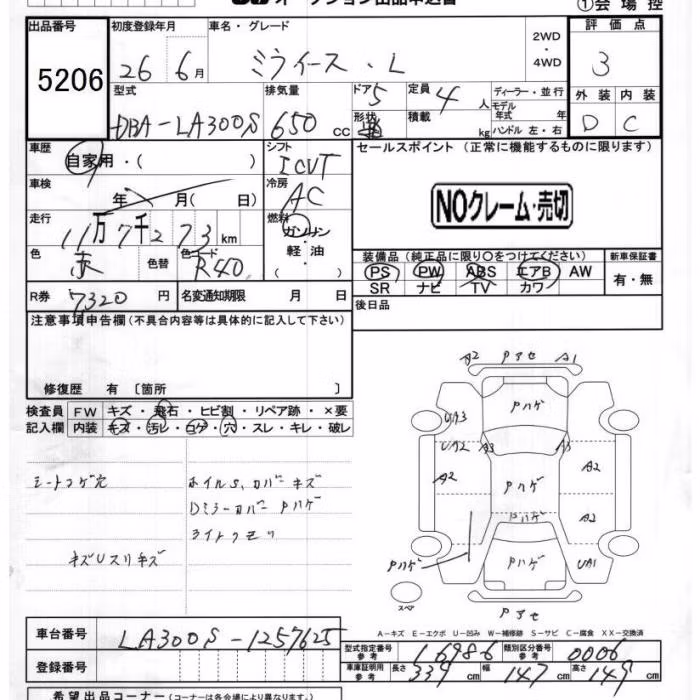 ①会場控
出品番号
5206
初度登録年月
26 6月
車名・グレード
ミライース・L
2WD
・
4WD
評価点
3
型式
DBA-LA300S
排気量
650 cc
ドア 5
形状
定員 4 人
積載 kg
ディーラー・並行
モデル年式 年
ハンドル 左・右
外装 内装
D C
車歴
自家用・( )
シフト
ICVT
セールスポイント (正常に機能するものに限ります)
NOクレーム・売切
車検
年 月( 日)
冷房
AC
走行
11万7千273km
燃料
ガソリン
・
軽油
( )
色
赤
色替
色コード
R40
装備品 (純正品に限り○をつけてください)
PS PW ABS エアB AW
SR ナビ TV カワ
新車保証書
有・無
R券 7320 円
名変通知期限 月 日
後日品
注意事項申告欄(不具合内容等は具体的に記入して下さい)
修復歴 有〔箇所 〕
検査員記入欄
FW キズ・飛石・ヒビ割・リペア跡・×要
内装 キズ・汚レ・コゲ・穴・スレ・キレ・破レ
シートコゲ穴
ホイルS,カバーキズ
Dミラーカバー Pハゲ
ライトクモリ
キズUスリキズ
A2 Pアセ A1
Pハゲ
UA3
UA2
A3
A3
A2
A2
Pハゲ
A2
Pハゲ
Pハゲ
Pハゲ
UA1
スペア
Pアセ
A-キズ E-エクボ U-凹み W-補修跡 S-サビ C-腐食 XX-交換済
車台番号
LA300S-1257625
登録番号
型式指定番号参考 16986
類別区分番号参考 0006
車庫証明用参考 長さ 339cm 幅 147cm 高さ 149cm
希望出品コーナー(コーナーは各会場により異なります。)